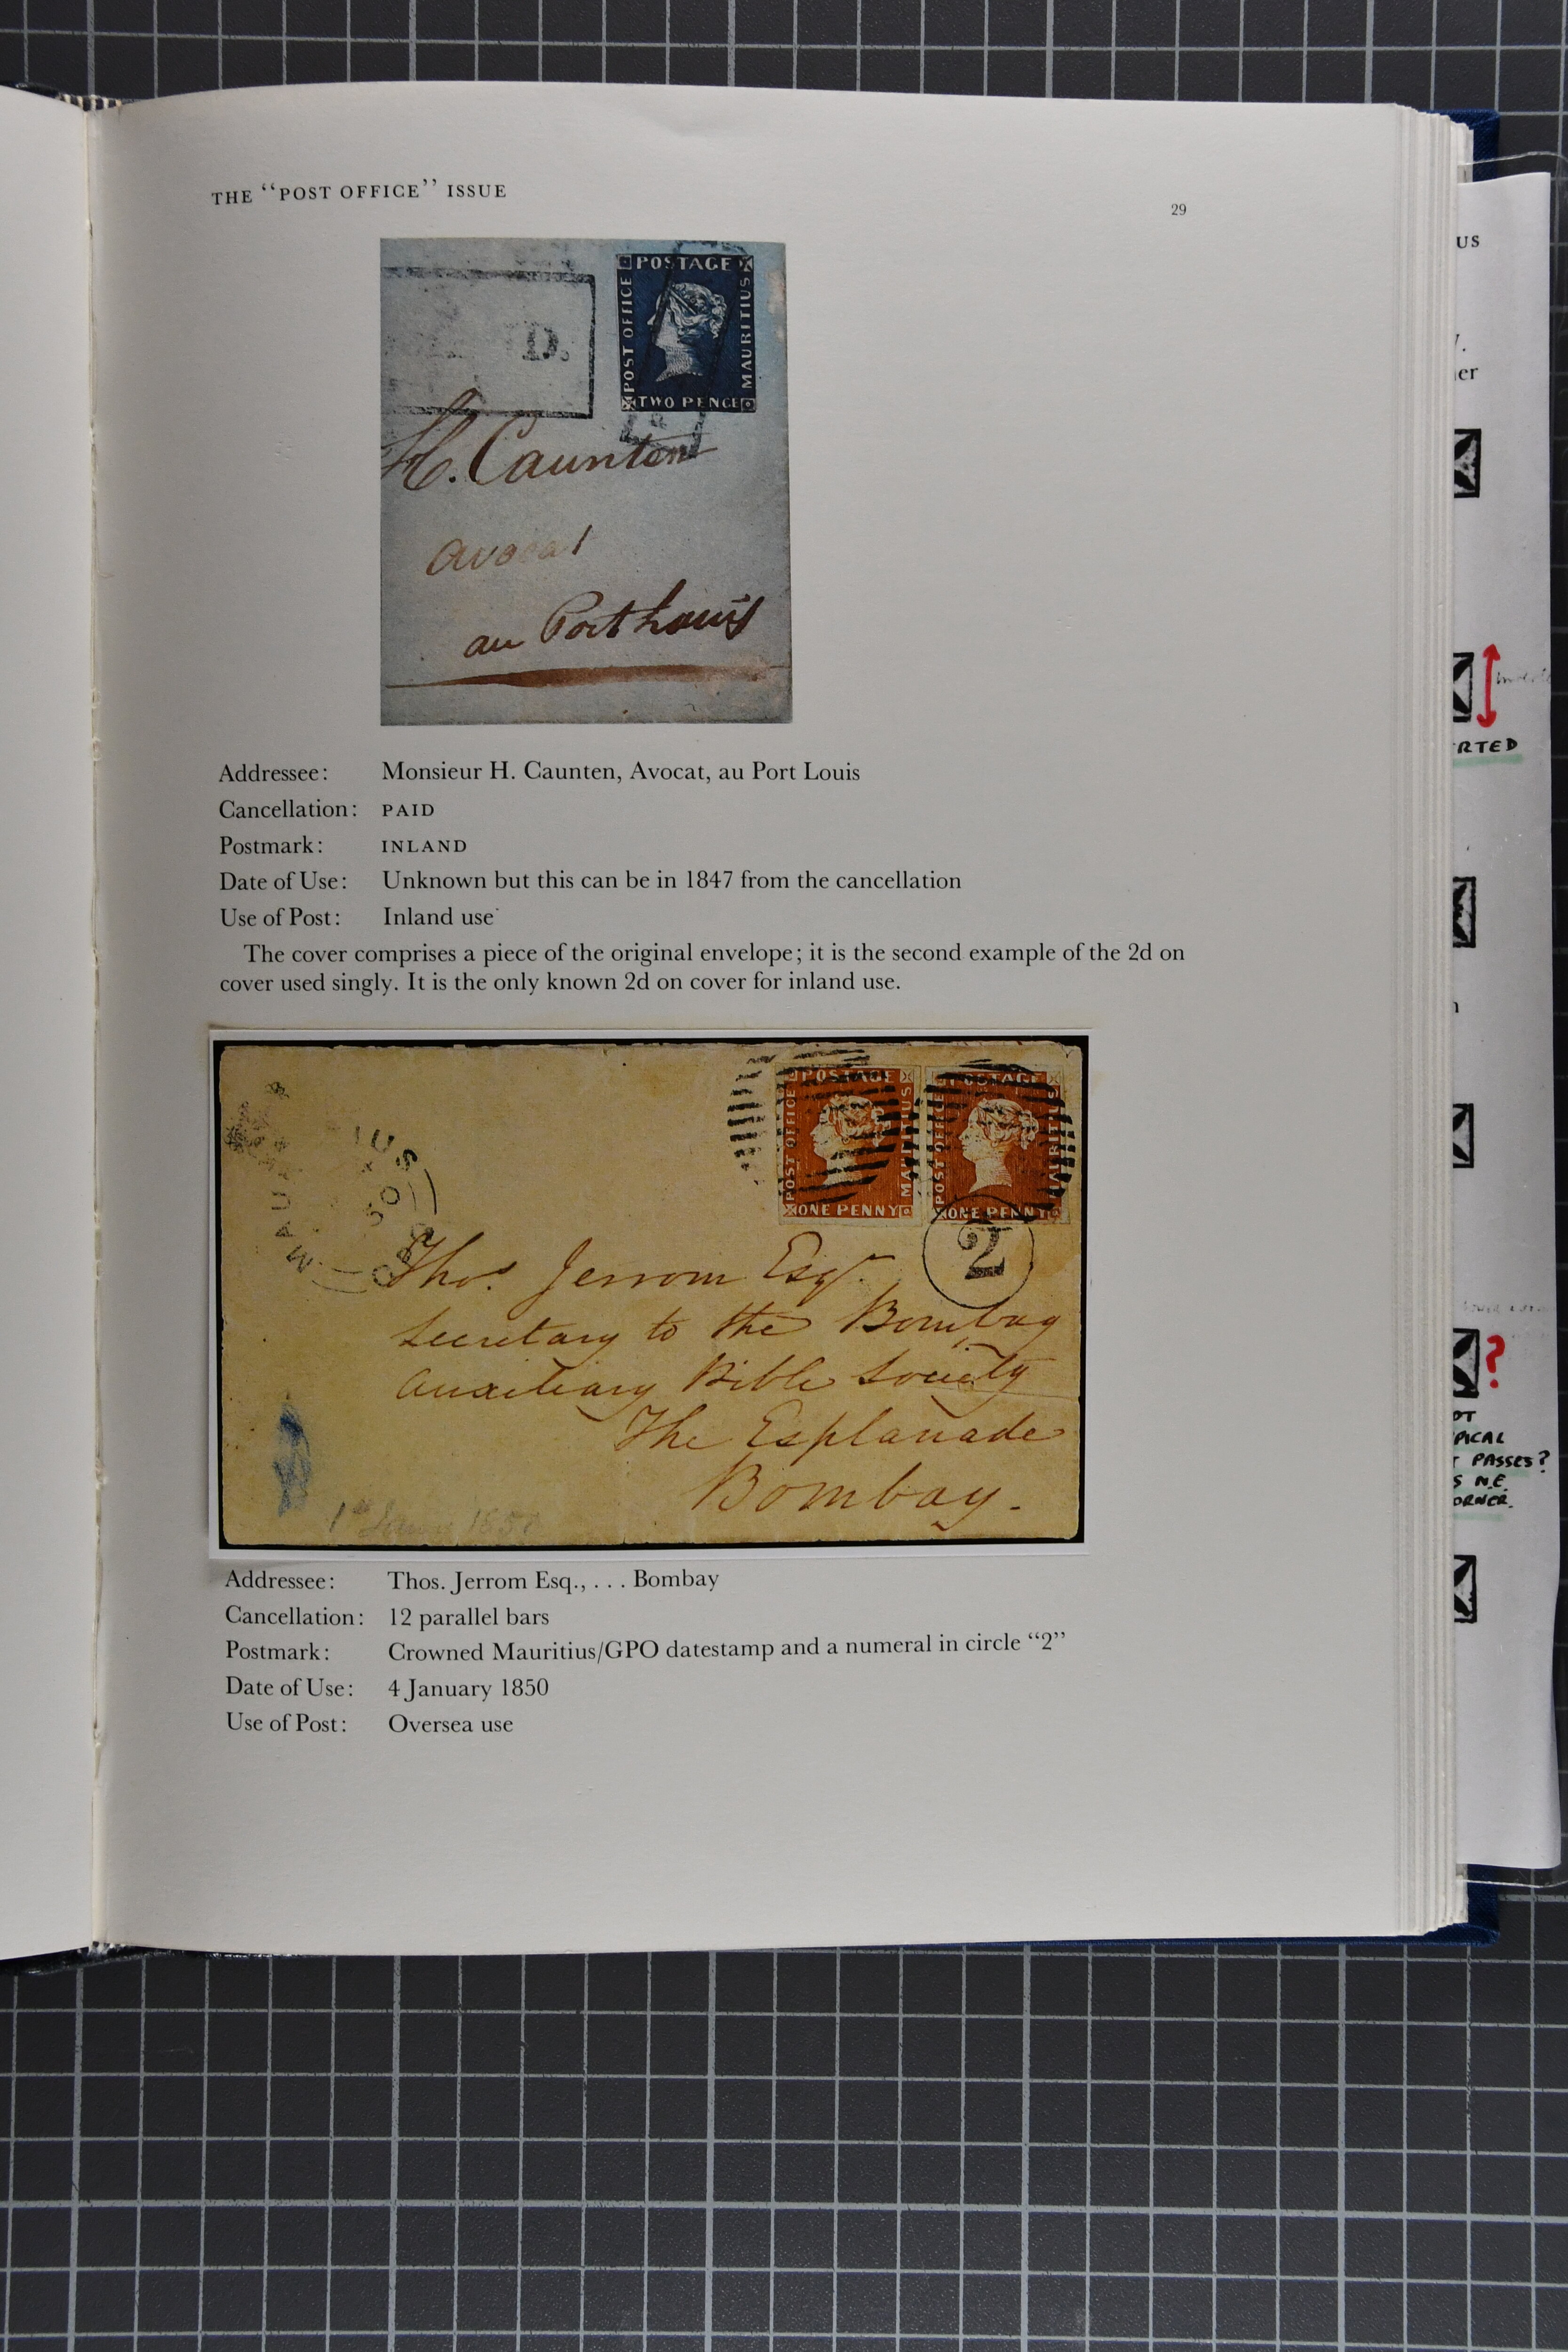 THE “POST OFFICE” ISSUE
29
D.
POSTAGE
POST OFFICE
MAURITIUS
TWO PENCE
H. Caunten
Avocat
au Port Louis
Addressee: Monsieur H. Caunten, Avocat, au Port Louis
Cancellation: PAID
Postmark: INLAND
Date of Use: Unknown but this can be in 1847 from the cancellation
Use of Post: Inland use
The cover comprises a piece of the original envelope; it is the second example of the 2d on
cover used singly. It is the only known 2d on cover for inland use.
POSTAGE
POST OFFICE
MAURITIUS
ONE PENNY
POSTAGE
POST OFFICE
MAURITIUS
ONE PENNY
2
Thos. Jerrom Esqr.
Secretary to the Bombay
Auxiliary Bible Society
The Esplanade
Bombay.
Addressee: Thos. Jerrom Esq., . . . Bombay
Cancellation: 12 parallel bars
Postmark: Crowned Mauritius/GPO datestamp and a numeral in circle “2”
Date of Use: 4 January 1850
Use of Post: Oversea use
US
RTED
?
PASSES?
N.E.